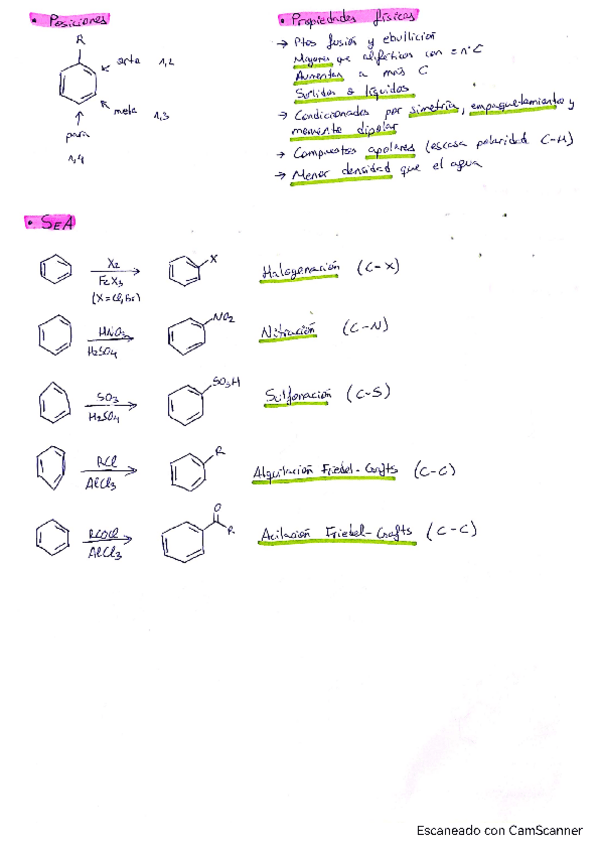 • Posiciones
R
orto 1,2
meta 1,3
para
1,4
• Propiedades físicas
→ Ptos fusión y ebullición
Mayores que alifáticos con = nº C
Aumentan a más C
Sólidos o líquidos
→ Condicionados por simetría, empaquetamiento y
momento dipolar
→ Compuestos apolares (escasa polaridad C-H)
→ Menor densidad que el agua
• SEA
X₂
FeX₃
(X=Cl, Br)
X
Halogenación (C-X)
HNO₃
H₂SO₄
NO₂
Nitración (C-N)
SO₃
H₂SO₄
SO₃H
Sulfonación (C-S)
RCl
AlCl₃
R
Alquilación Friedel-Crafts (C-C)
RCOCl
AlCl₃
O
R
Acilación Friedel-Crafts (C-C)
Escaneado con CamScanner